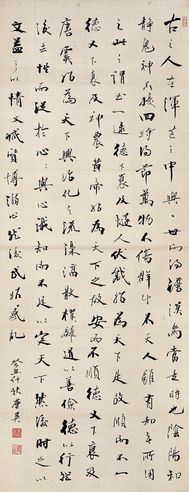 古之人在混芒之中與一世而得澹漠焉當是時也陰陽和
靜鬼神不擾四時得節萬物不傷群生不夭人雖有知無所用
之此之謂至一逮德下衰及燧人伏戲始為天下是故順而不一
德又下衰及神農黃帝始為天下是故安而不順德又下衰及
唐虞始為天下興治化之流澆淳散樸離道以善險德以行然
後去性而從於心心與心識知而不足以定天下然後附之以
文益之以博文滅質博溺心然後民始惑亂